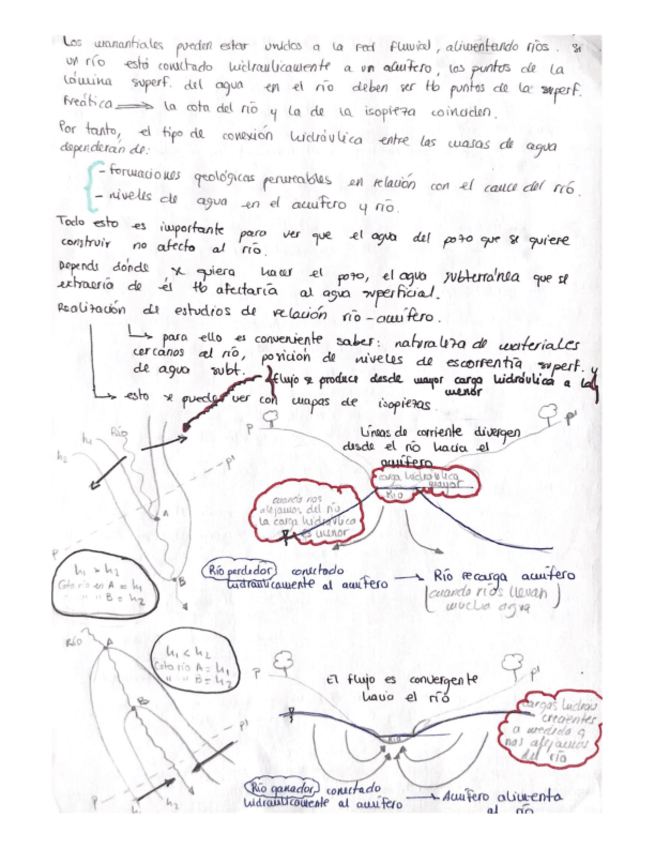 Los manantiales pueden estar unidos a la red fluvial, alimentando ríos. Si
un río está conectado hidráulicamente a un acuífero, los puntos de la
lámina superf. del agua en el río deben ser tb puntos de la superf.
freática → la cota del río y la de la isopieza coinciden.
Por tanto, el tipo de conexión hidráulica entre las masas de agua
dependerán de:
- formaciones geológicas permeables en relación con el cauce del río.
- niveles de agua en el acuífero y río.
Todo esto es importante para ver que el agua del pozo que se quiere
construir no afecta al río.
Depende dónde se quiera hacer el pozo, el agua subterránea que se
extraería de él tb afectaría al agua superficial.
Realización de estudios de relación río-acuífero.
para ello es conveniente saber: naturaleza de materiales
cercanos al río, posición de niveles de escorrentía superf. y
de agua subt.
flujo se produce desde mayor carga hidráulica a la
menor
esto se puede ver con mapas de isopiezas
Río
h1
h2
P
P'
A
B
h1 > h2
Cota río en A = h1
" " B = h2
P
P'
Líneas de corriente divergen
desde el río hacia el
acuífero
carga hidráulica
mayor
Río
cuando nos
alejamos del río
la carga hidráulica
es menor
Río perdedor conectado
hidráulicamente al acuífero → Río recarga acuífero
(cuando ríos llevan
mucha agua)
Río
A
B
P
P'
h1
h2
h1 < h2
Cota río A = h1
" " B = h2
P
P'
El flujo es convergente
hacia el río
Río
cargas hidráu
crecientes
a medida q
nos alejamos
del río
Río ganador conectado
hidráulicamente al acuífero → Acuífero alimenta
al río